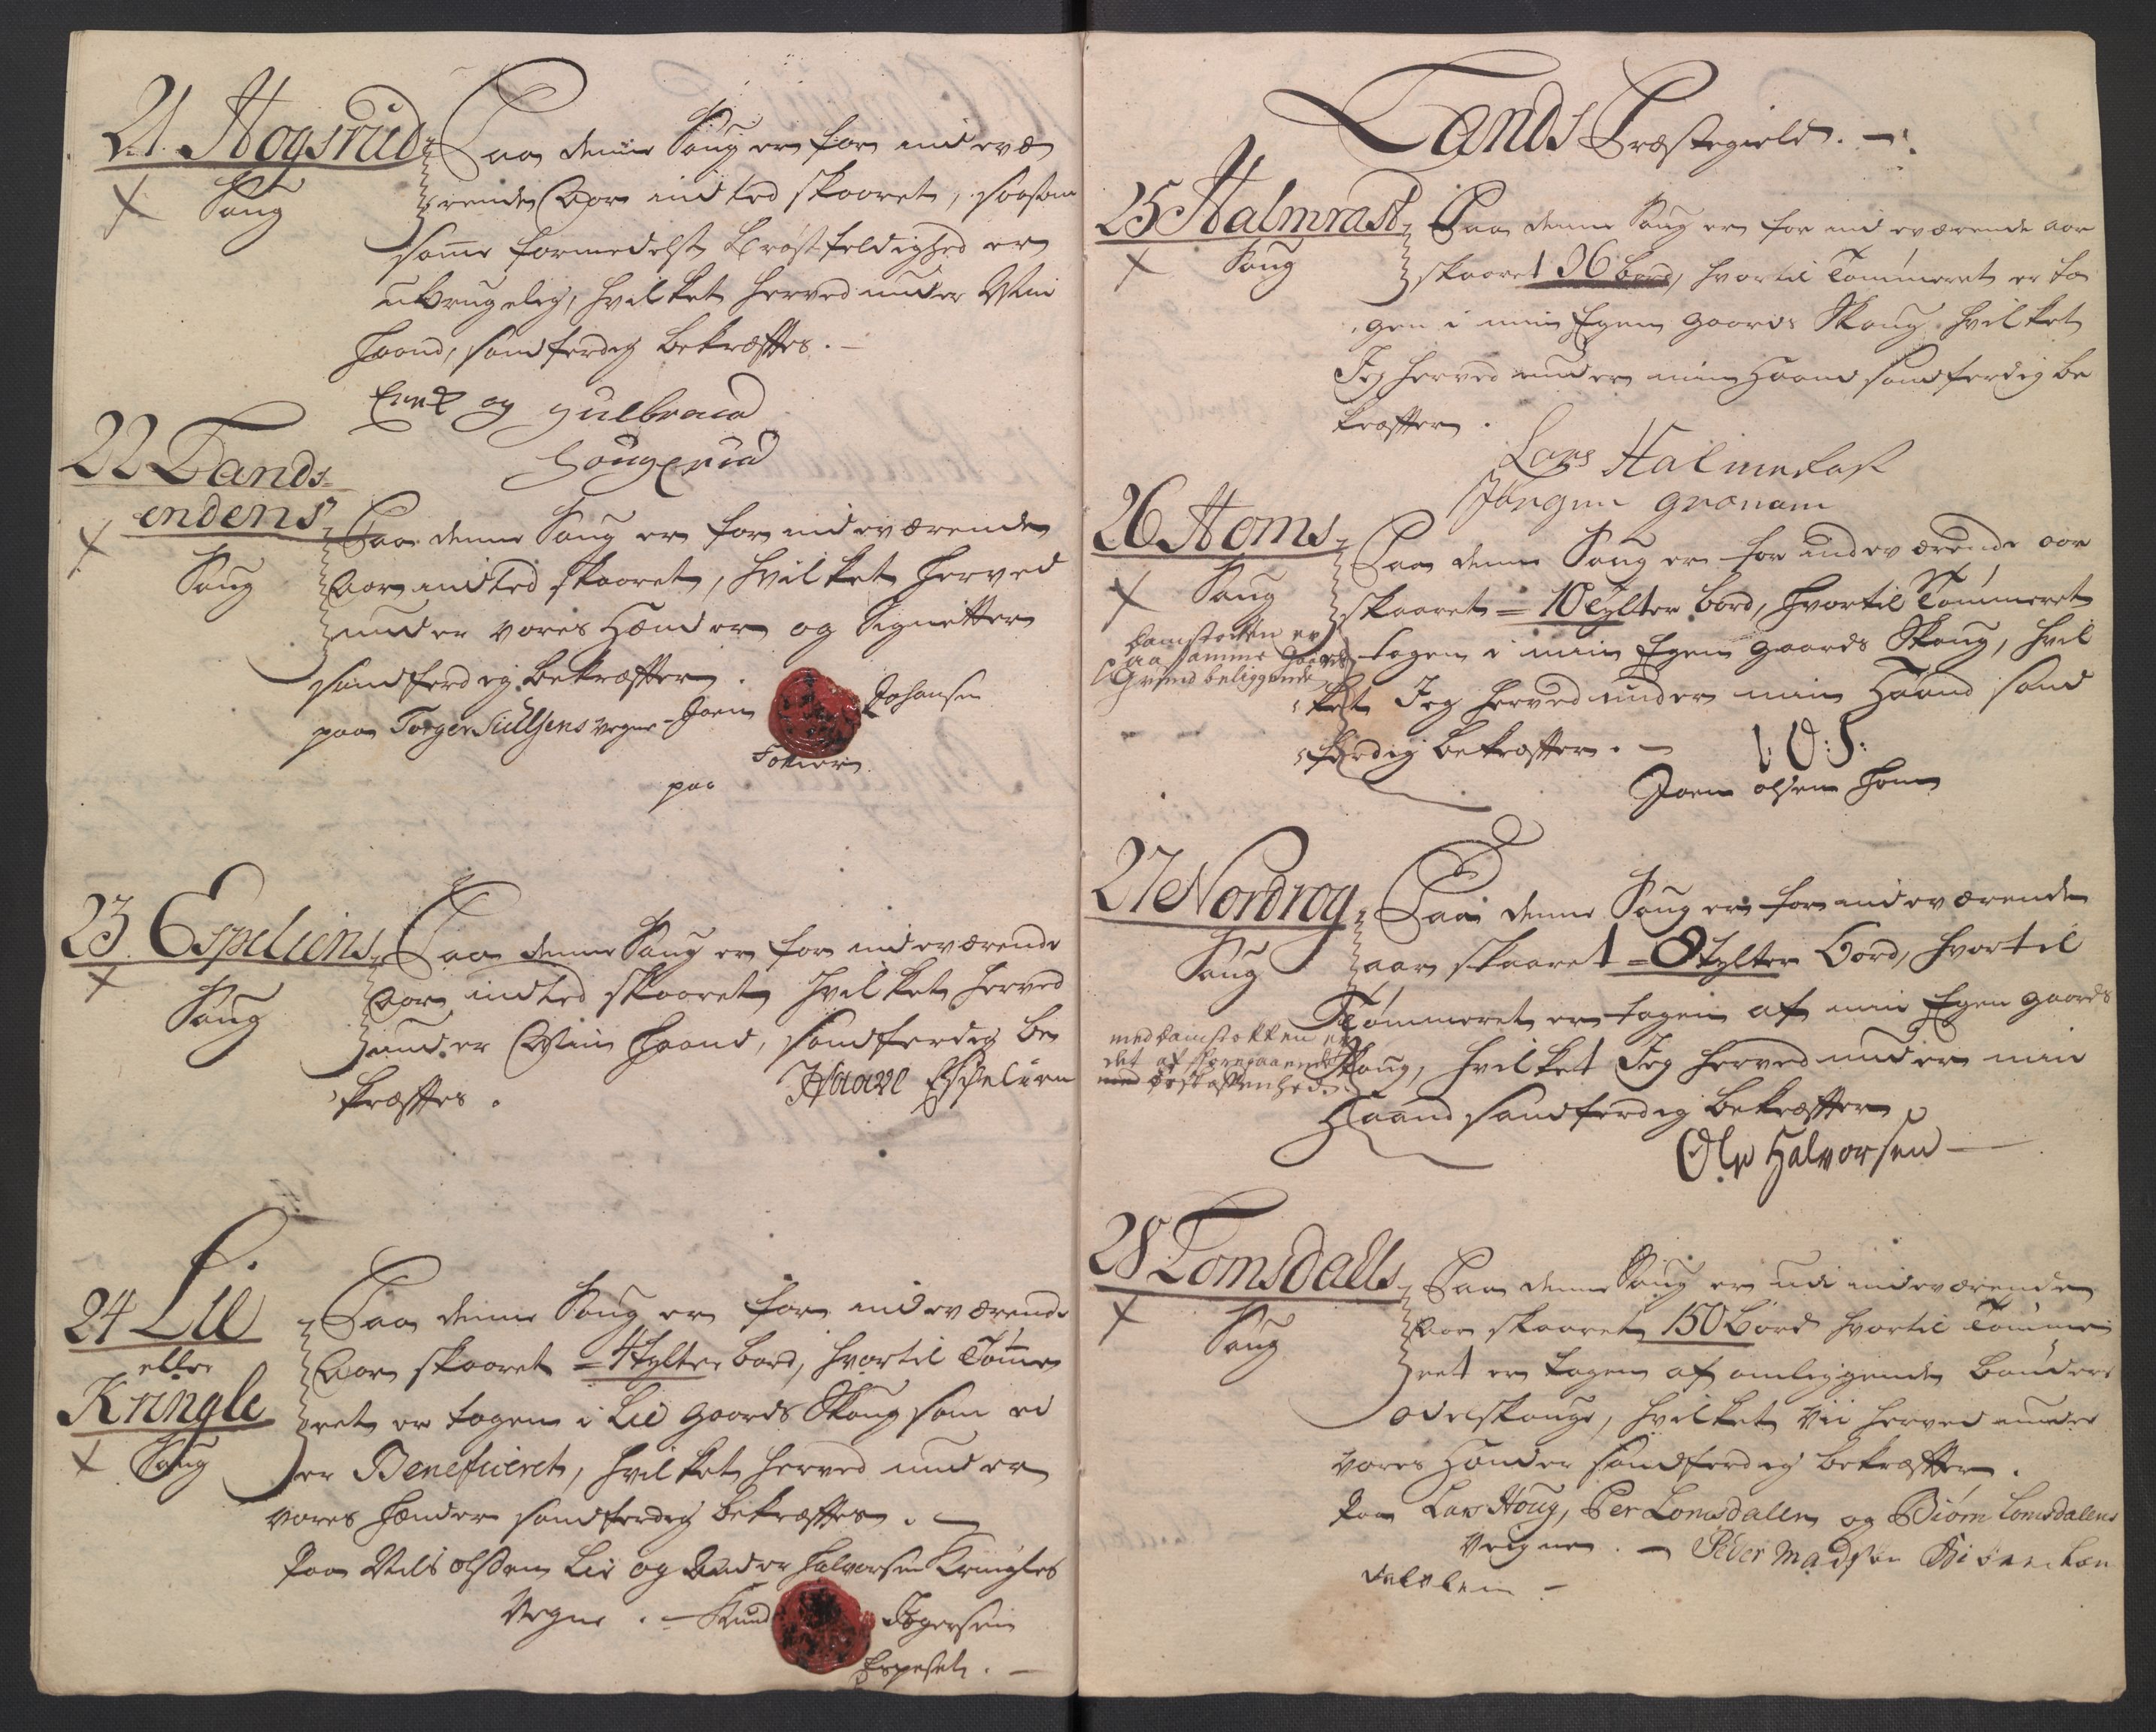 21. Hogsrud
Saug
Paa denne Saug er for indevæ
rende Aar intted skaaret, saasom
samme formedelst Brøstfeldighed er
ubrugelig, hvilket herved under Min
Haand, sandferdig bekræftes. -
og gulbrand
Hougsrud
22 Lands-
endens
Saug
Paa denne Saug er for indeværende
Aar intted skaaret, hvilket herved
under vores Hænder og Signetter
sandferdig bekræfter.
paa Torger Siulsens vegne - Joen Johansen
paa
23. Espeliens
Saug
Paa denne Saug er for indeværende
Aar intted skaaret hvilket herved
under Min Haand, sandferdig be
kræftes. Haavel Espelien
24 Lie
eller
Kringle
Saug
Paa denne Saug er for indeværende
Aar skaaret = 4 tylter bord, hvortil Tømme
ret er tagen i Lie Gaards Skoug som ei
er Beneficeret, hvilket herved under
vores Hænder sandferdig bekræftes. -
Paa Nils olsen Lie og Peder Halvorsen Kringles
Vegne. - Knud
Espeseth. -
Lands Præstegield. -
25 Halmrast
Saug
Paa denne Saug er for indeværende aar
skaaret 96 bord, hvortil Tømmeret er ta
gen i min Egen gaards Skoug hvilket
Jeg herved under min Haand sandferdig be
kræfter.
Lars Halmerast
Jørgen granum
26 Homs
Saug
Damstokken er
paa samme Gaards
Grund beliggende
Paa denne Saug er for indeværende aar
skaaret = 10 tylter bord, hvortil Tømmeret
tagen i min Egen gaards Skoug, hvil
ket Jeg herved under min Haand sand
ferdig bekræfter. - I: O: S:
Joen olsen Hom
27 Nordrog
Saug
med Damstokken er
det af foregaaende
beskaffenhed.
Paa denne Saug er for indeværende
aar skaaret = 8 tylter Bord, hvortil
Tømmeret er tagen af min Egen gaards
Skoug, hvilket Jeg herved under min
Haand sandferdig bekræfter
Ole Halvorsen
28 Lomsdalls
Saug
Paa denne Saug er udi indeværende
Aar skaaret 150 Bord hvortil Tømme
ret er tagen af omliggende Bønders
odelskouge, hvilket Vii herved under
vores Hænder sandferdig bekræfter.
Paa Lars Houg, Per Lomsdallen og Biørn Lomsdalens
Vegne. - Peder Madsen